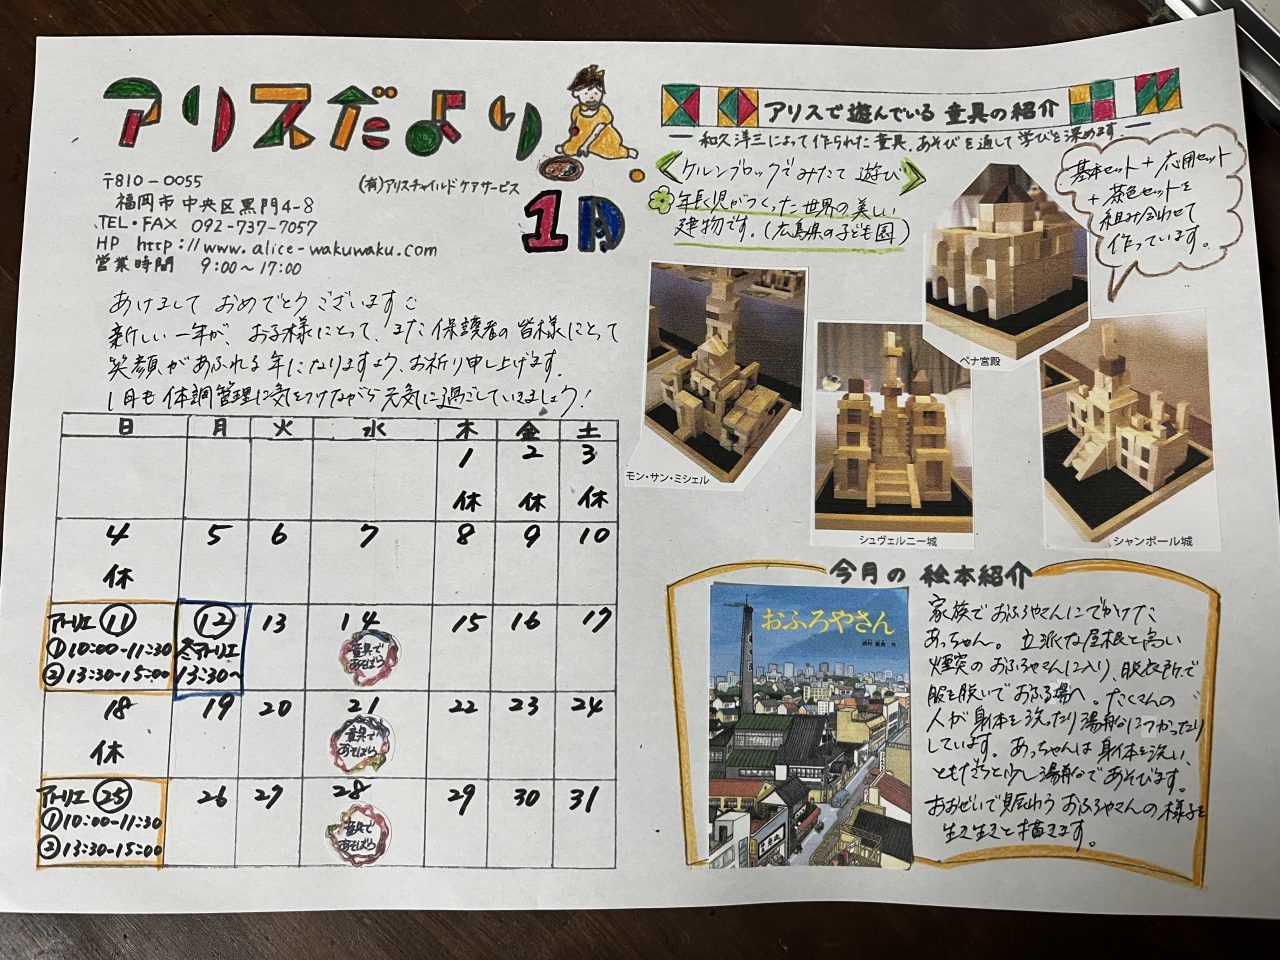 アリスだより
1月
〒810-0055
(有)アリスチャイルドケアサービス
福岡市中央区黒門4-8
TEL・FAX 092-737-7057
HP http://www.alice-wakuwaku.com
営業時間 9:00~17:00
あけまして おめでとうございます。
新しい一年が、お子様にとって、また保護者の皆様にとって
笑顔があふれる年になりますよう、お祈り申し上げます。
1月も体調管理に気をつけながら元気に過ごしていきましょう!
日 月 火 水 木 金 土
1 2 3
休 休 休
4 5 6 7 8 9 10
休
アトリエ ⑪ ⑫ 13 14 15 16 17
①10:00-11:30 冬アトリエ 童具であそぼう
②13:30-15:00 13:30~
18 19 20 21 22 23 24
休 童具であそぼう
アトリエ ㉕ 26 27 28 29 30 31
①10:00-11:30 童具であそぼう
②13:30-15:00
アリスで遊んでいる 童具の紹介
― 和久洋三によって作られた童具、あそびを通して学びを深めます。―
<ケルンブロックでみたて遊び>
年長児がつくった世界の美しい
建物です。(広島県の子ども園)
基本セット+応用セット
+茶色セットを
組み合わせて
作っています。
ペナ宮殿
モン・サン・ミシェル
シュヴェルニー城
シャンボール城
今月の 絵本紹介
おふろやさん
西村繁男 作
家族でおふろやさんにでかけた
あっちゃん。立派な屋根と高い
煙突のおふろやさんに入り、脱衣所で
服を脱いでおふろ場へ。たくさんの
人が身体を洗ったり湯船につかったり
しています。あっちゃんは身体を洗い、
ともだちと少し湯船であそびます。
おおぜいで賑わうおふろやさんの様子を
生き生きと描きます。